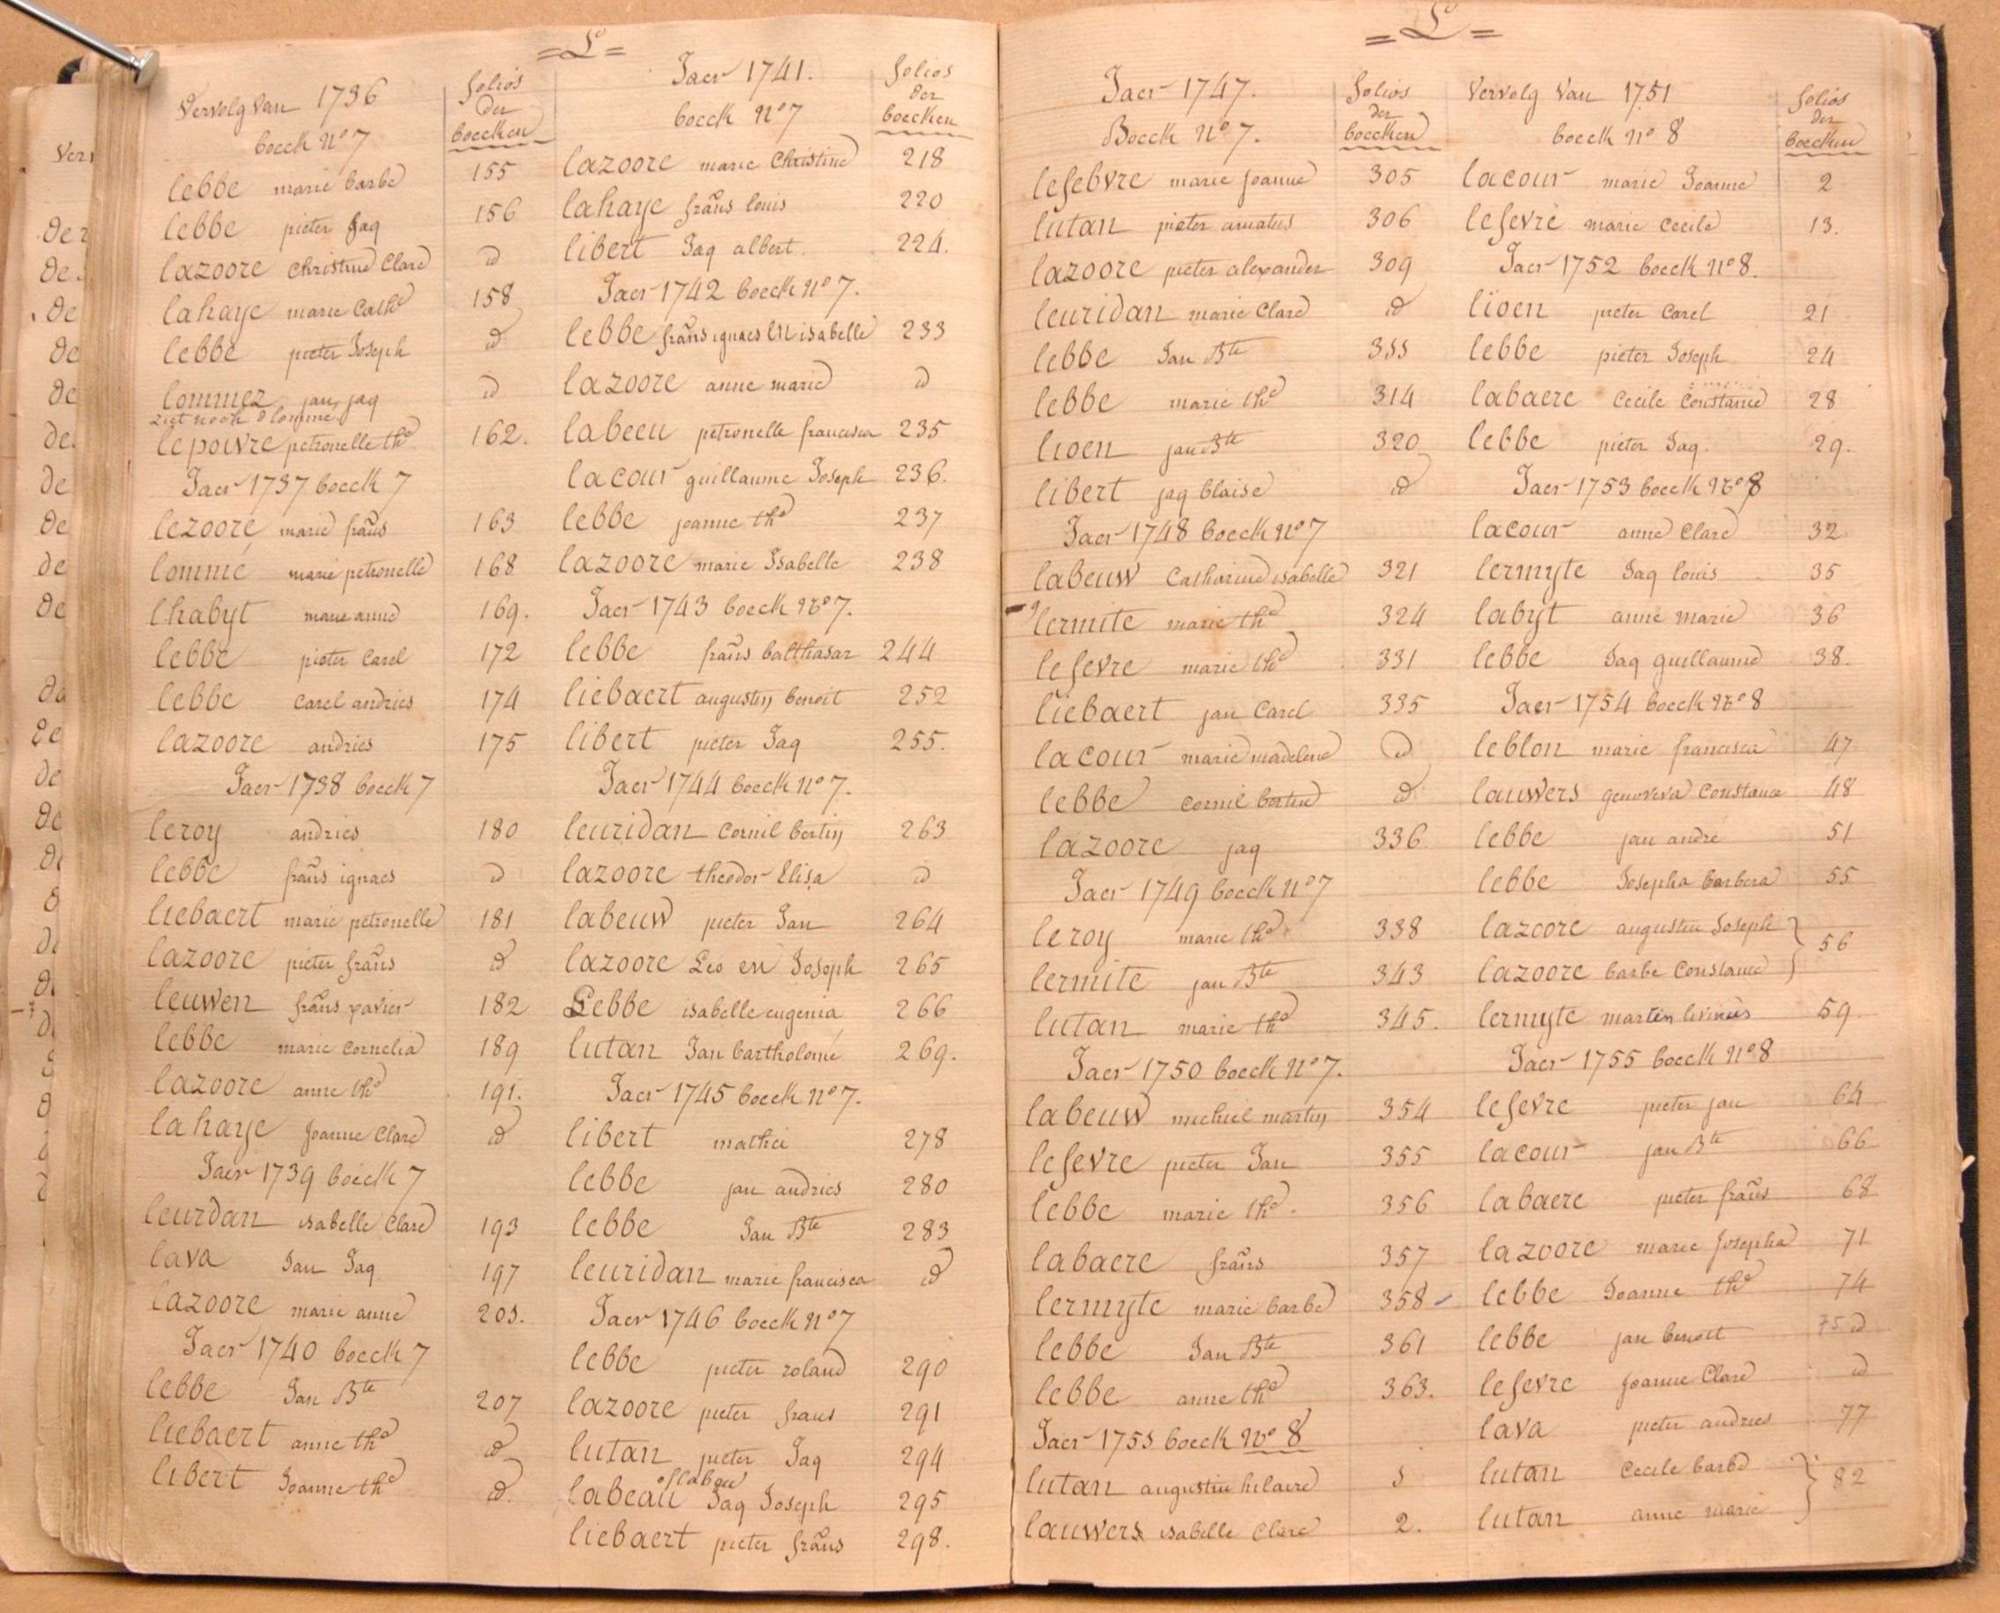 = L =
Vervolg Van 1736
boeck No 7
folios
der
boecken
lebbe marie barbe 155
lebbe pieter Jaq 156
lazoore Christine Clare id
lahaye marie Cathe 158
lebbe pieter Joseph id
lommez jan jaq id
ziet nock d'lommé
lepoivre petronelle the 162.
Jaer 1737 boeck 7
lezoore marie frans 163
lommé marie petronelle 168
lhabyt marie anne 169.
lebbe pieter Carel 172
lebbe Carel andries 174
lazoore andries 175
Jaer 1738 boeck 7
leroy andries 180
lebbe frans ignaes id
liebaert marie petronelle 181
lazoore pieter frans id
leuwen frans xavier 182
lebbe marie Cornelia 189
lazoore anne the 191.
lahaye Joanne Clare id
Jaer 1739 boeck 7
leurdan isabelle Clare 193
lava Jan Jaq 197
lazoore marie anne 203.
Jaer 1740 boeck 7
lebbe Jan Bte 207
liebaert anne the id
libert Joanne the id.
Jaer 1741.
boeck No 7
folios
der
boecken
lazoore marie Christine 218
lahaye frans louis 220
libert Jaq albert 224.
Jaer 1742 boeck No 7.
lebbe frans ignaes en isabelle 233
lazoore anne marie id
labeeu petronelle francisca 235
lacour guillaume Joseph 236.
lebbe joanne the 237
lazoore marie Isabelle 238
Jaer 1743 boeck No 7.
lebbe frans balthasar 244
liebaert augustin benoit 252
libert pieter Jaq 255.
Jaer 1744 boeck No 7.
leuridan Cornil bertin 263
lazoore theodor Elisa id
labeuw pieter Jan 264
lazoore Leo en Joseph 265
Lebbe isabelle eugenia 266
lutan Jan bartholomé 269.
Jaer 1745 boeck No 7.
libert mathei 278
lebbe jan andries 280
lebbe Jan Bte 283
leuridan marie francisca id
Jaer 1746 boeck No 7
lebbe pieter roland 290
lazoore pieter frans 291
lutan pieter Jaq 294
of labau
labeau Jaq Joseph 295
liebaert pieter frans 298.
= L =
Jaer 1747.
Boeck No 7.
folios
der
boecken
lefebvre marie Joanne 305
lutan pieter amatus 306
lazoore pieter alexander 309
leuridan marie Clare id
lebbe Jan Bte 311
lebbe marie the 314
lioen jan Bte 320
libert jaq blaise id
Jaer 1748 boeck No 7
labeuw Catharine isabelle 321
lermite marie the 324
lefevre marie the 331
liebaert jan Carel 335
lacour marie madelene id
lebbe Cornil bertin id
lazoore jaq 336
Jaer 1749 boeck No 7
leroy marie the 338
lermite jan Bte 343
lutan marie the 345.
Jaer 1750 boeck No 7.
labeuw michiel martin 354
lefevre pieter Jan 355
lebbe marie the. 356
labaere frans 357
lermyte marie barbe 358
lebbe Jan Bte 361
lebbe anne the 363.
Jaer 1751 boeck No 8
lutan augustin hilaire 1
lauwers isabelle Clare 2.
Vervolg Van 1751
boeck No 8
folios
der
boecken
lacour marie Joanne 2
lefevre marie Cecile 13.
Jaer 1752 boeck No 8.
lioen pieter Carel 21
lebbe pieter Joseph 24
labaere Cecile Constance 28
lebbe pieter Jaq. 29.
Jaer 1753 boeck No 8
lacour anne Clare 32
lermyte Jaq louis 35
labyt anne marie 36
lebbe Jaq guillaume 38.
Jaer 1754 boeck No 8
leblon marie francisca 47
lauwers genoveva Constance 48
lebbe jan andré 51
lebbe Josepha barbera 55
lazoore augustin Joseph } 56
lazoore barbe Constance
lermyte martin livinus 59.
Jaer 1755 boeck No 8
lefevre pieter jan 64
lacour jan Bte 66
labaere pieter frans 68
lazoore marie Josepha 71
lebbe Joanne the 74
lebbe jan benoit 75 id
lefevre Joanne Clare id
lava pieter andries 77
lutan Cecile barbe } 82
lutan anne marie